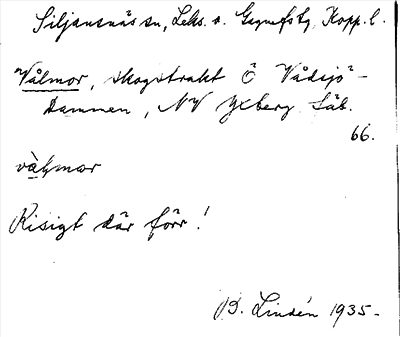 Siljansnäs sn, Leks. o. Gagnefs tg, Kopp. l.
Vålmor, skogstrakt Ö Vådsjö-
dammen, NV Yxberg Säb.
66.
Risigt där förr!
B. Lindén 1935-